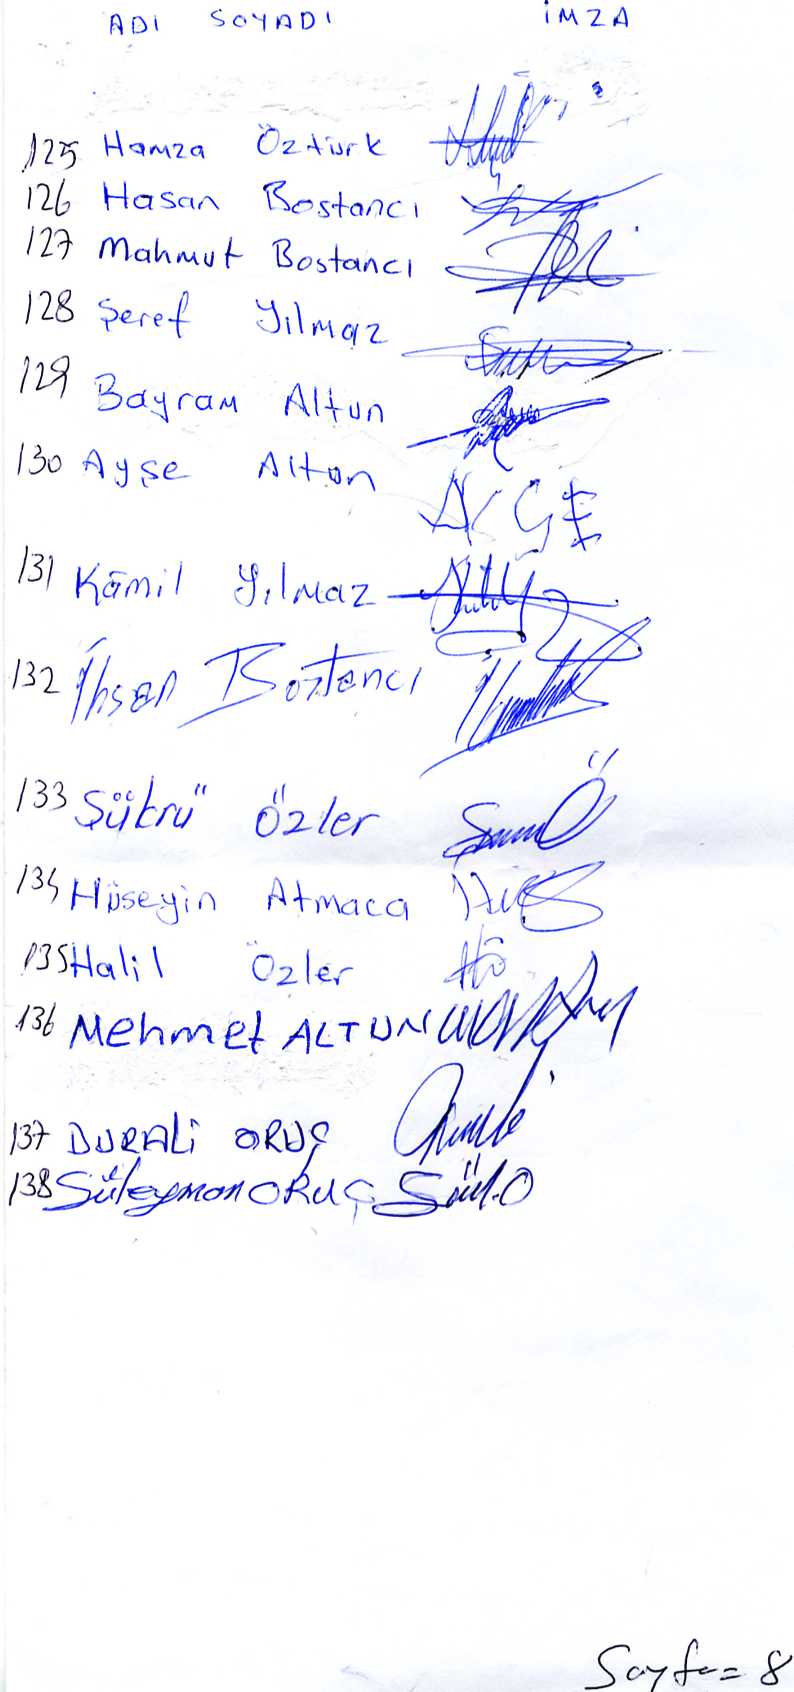 ADI SOYADI İMZA
125 Hamza Öztürk
126 Hasan Bostancı
127 Mahmut Bostancı
128 Şeref Yılmaz
129 Bayram Altun
130 Ayşe Altun
131 Kâmil Yılmaz
132 İhsan Boztancı
133 Şükrü Özler
134 Hüseyin Atmaca
135 Halil Özler HÖ
136 Mehmet ALTUN
137 DURALi ORUÇ
138 Süleyman ORUÇ
Sayfa = 8